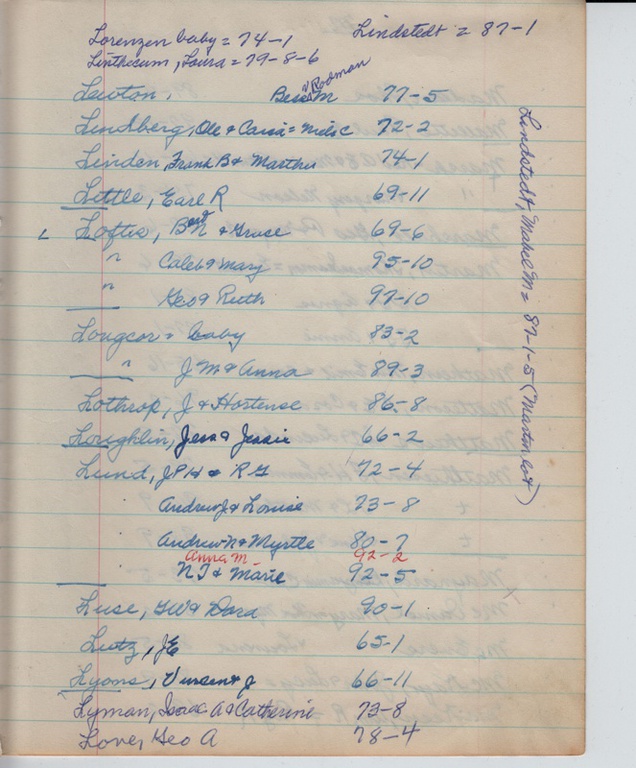 Lorenzen baby = 74-1
Lindstedt = 87-1
Linthicum, Laura = 79-8-6
Rodman
Lawton, Bess M 77-5
Lindberg, Ole & = 72-2
Linden, Frank B & Martha 74-1
Little, Earl R 69-11
Loftis, & Grace 69-6
" Caleb & Mary 95-10
" Geo & Ruth 97-10
Longcor = baby 83-2
" J M & Anna 89-3
Lothrop, J & Hortense 86-8
Loughlin, Jess & Jessie 66-2
Lund, J P H & R G 72-4
Andrew J & Louise 73-8
Andrew N & Myrtle 80-7
Anna M- 92-2
N J & Marie 92-5
Luse, GW & Dora 90-1
Lutz, JE 65-1
Lyons, Vincent J 66-11
Lyman, Isaac A & Catherine 73-8
Love, Geo A 78-4
Lindstedt, Mabel M = 87-1-5 (Marton lot)